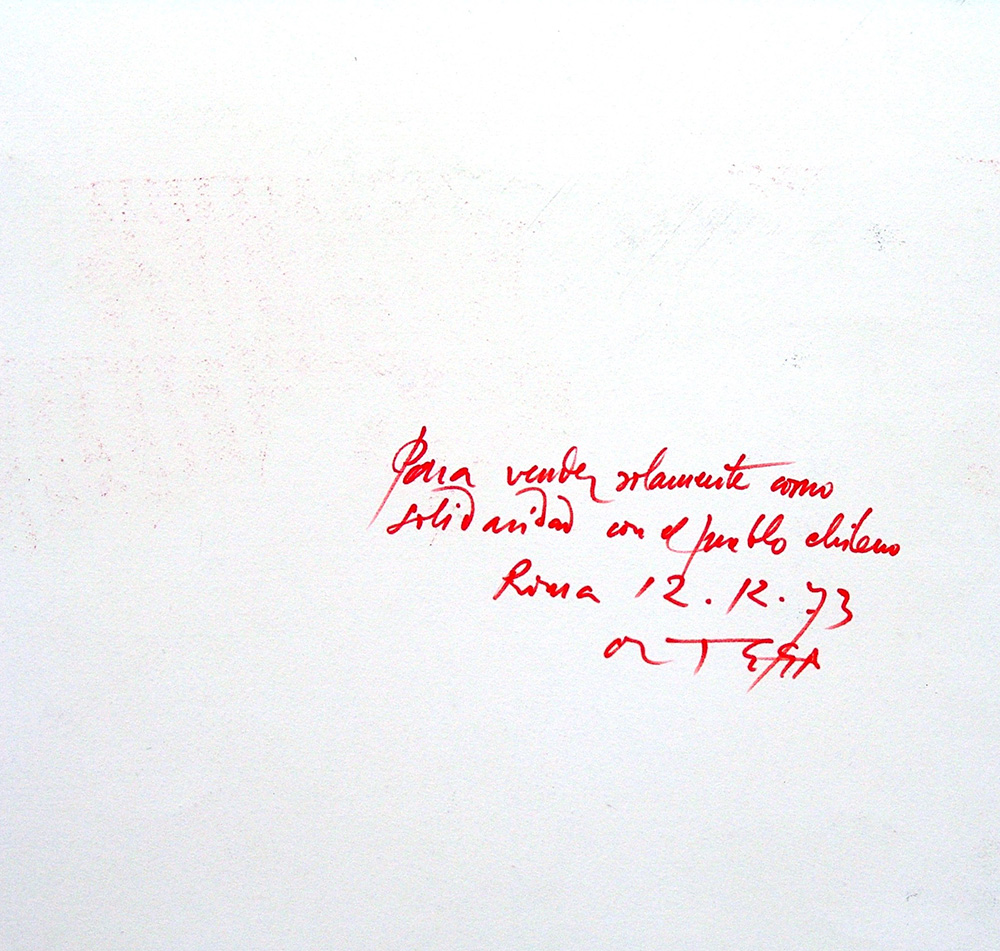 Para vender solamente como
solidaridad con el pueblo chileno
Roma 12.12.73
ORTEGA